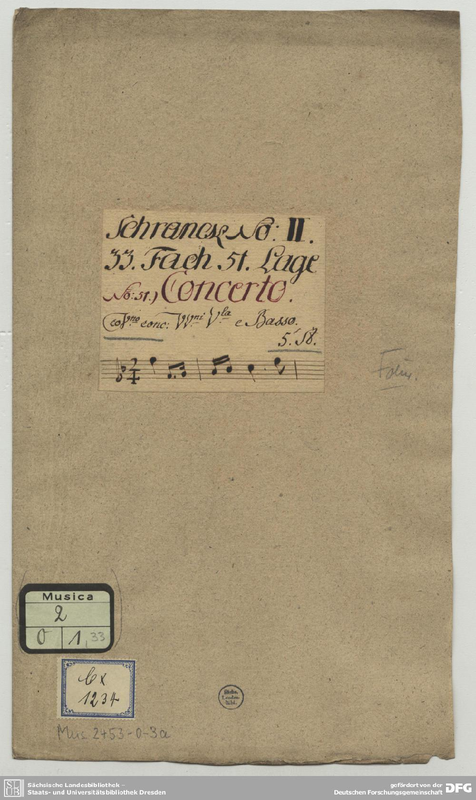 Schranck No: II.
33. Fach 51. Lage
No: 51.) Concerto.
co Vno conc: VVni Vla e Basso.
5. St.
2/4
Musica
2
O 1,33
Cx
1234
Mus. 2453-O-3a
Sächsische Landesbibliothek -
Staats- und Universitätsbibliothek Dresden
gefördert von der
Deutschen Forschungsgemeinschaft DFG